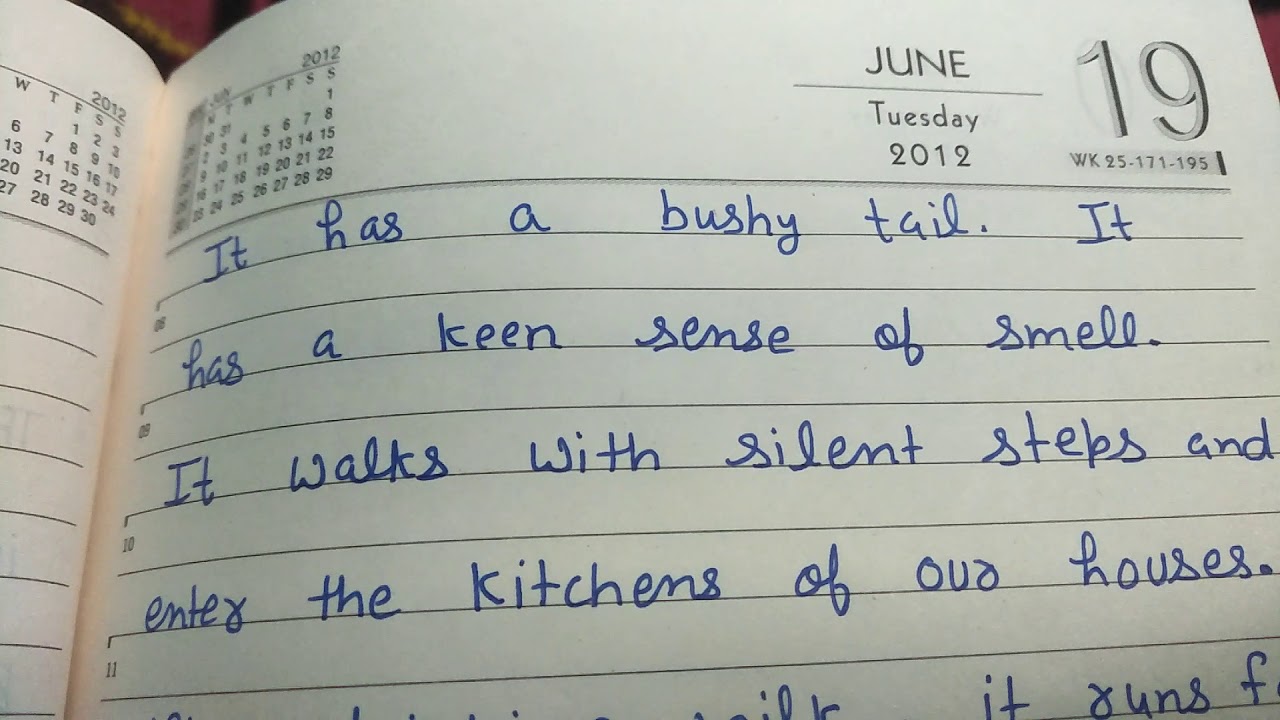 2012
W T F S S
1 2 3
6 7 8 9 10
13 14 15 16 17
20 21 22 23 24
27 28 29 30
2012
W T F S S
1
4 5 6 7 8
10 11 12 13 14 15
16 17 18 19 20 21 22
23 24 25 26 27 28 29
JUNE
Tuesday
2012
19
WK 25-171-195
It has a bushy tail. It
08
has a keen sense of smell.
09
It walks with silent steps and
10
enter the kitchens of our houses.
11
it runs